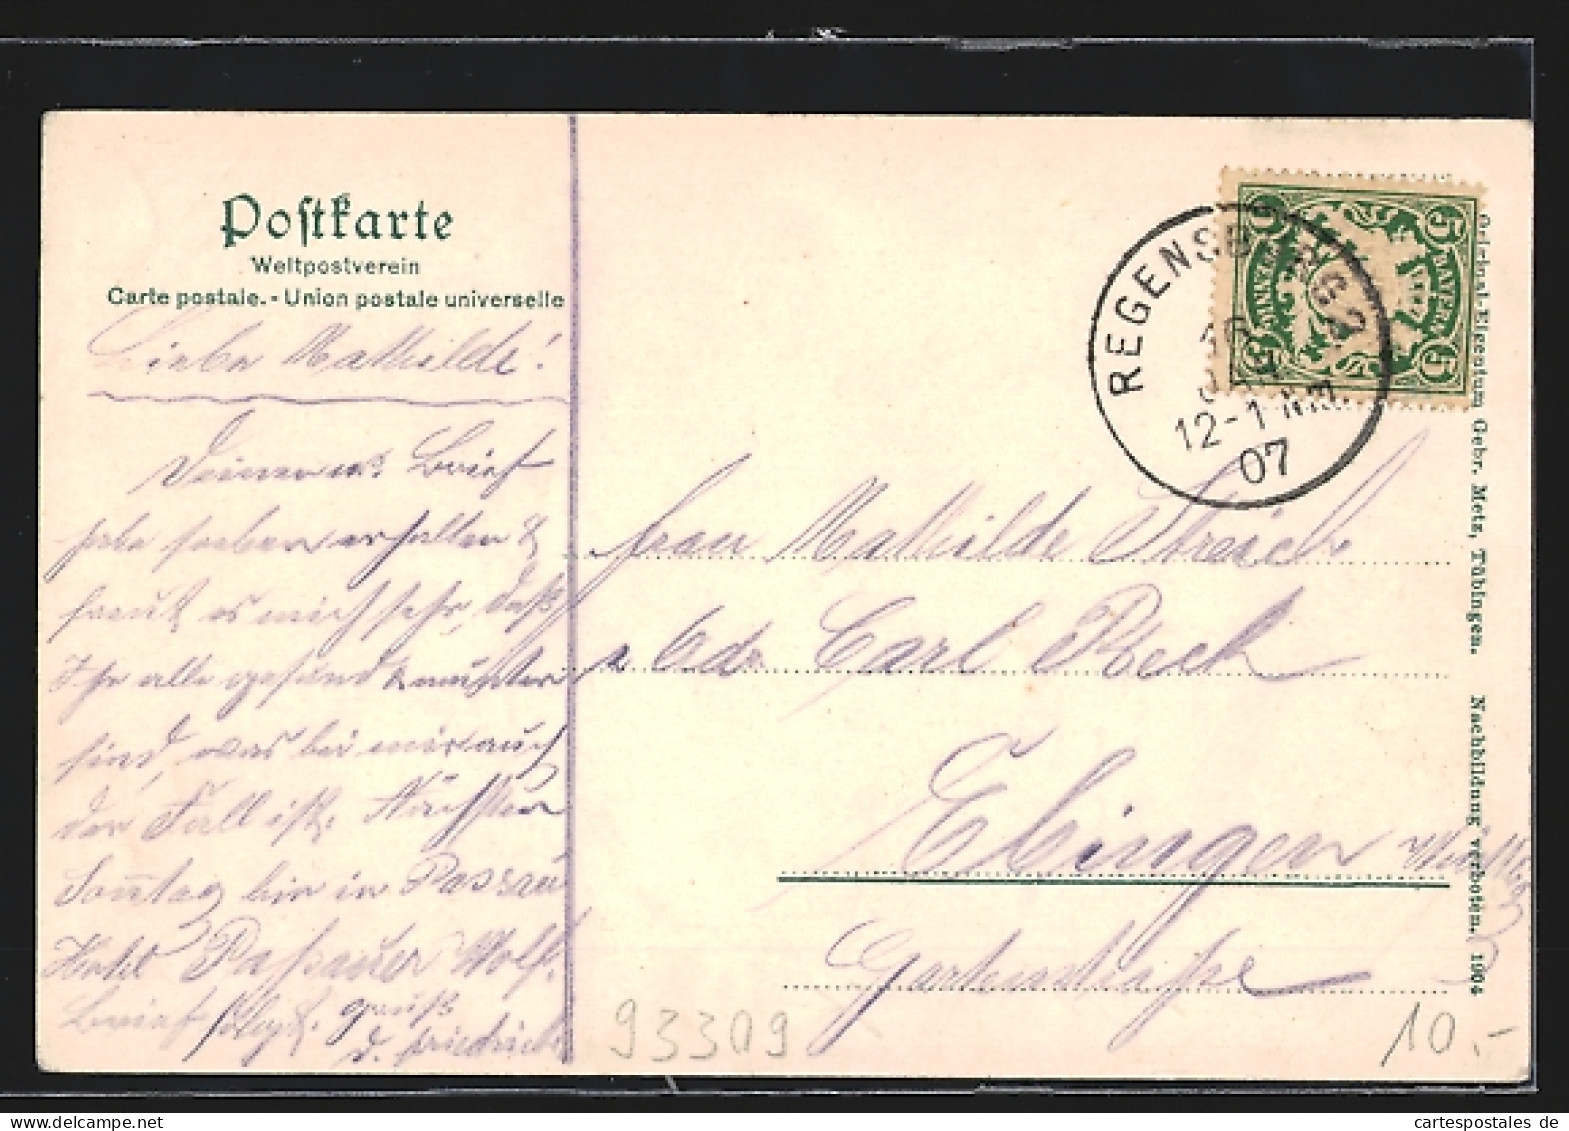 Postkarte
Weltpostverein
Carte postale. - Union postale universelle
Liebe Mathilde!
Deinen Brief
habe soeben erhalten &
freut es mich sehr, daß
Ihr alle gesund & munter
sind, was bei mir auch
der Fall ist. Nächsten
Sonntag bin in Passau
Hotel Passauer Wolf.
Brief folgt. Gruß
d. Friedrich
REGENSBURG 2
12-1 Nm.
07
5 5
BAYERN
5 5
Frau Mathilde Streich
Adr. Carl Beck
Ebingen Württbg
Gartenstraße
Original-Eigentum Gebr. Metz, Tübingen. Nachbildung verboten. 1904
93309
10.-
cartespostales de